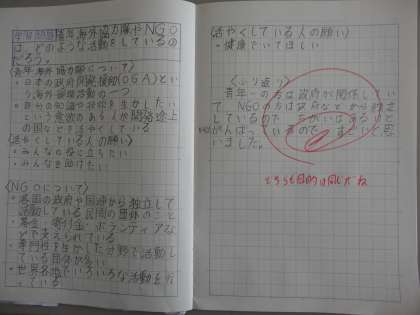 学習問題 青年海外協力隊やNGO
は、どのような活動をしているの
だろう。
〈青年海外協力隊について〉
・日本の政府開発援助(OGA)とい
う海外援助活動の一つ
・自分の知識や技術を生かしたい
という意欲のある人が開発途上
の国などで活やくしている
〈活やくしている人の願い〉
・みんなの役に立ちたい
・みんなを助けたい
〈NGOについて〉
・各国の政府や国連から独立して
活動している民間の団体のこと
・募金、寄付金、ボランティアな
どで支えられている
・専門性を生かした分野で活動し
ている団体が多い
・世界各地でいろいろな活動を行
っている
〈活やくしている人の願い〉
・健康でいてほしい
〈ふり返り〉
青年の方は政府が関係してい
て、NGOの方は政府などから独立
しているのでちがいはあると
がんばっているので、すごいと思
いました。
どちらも目的は同じだね